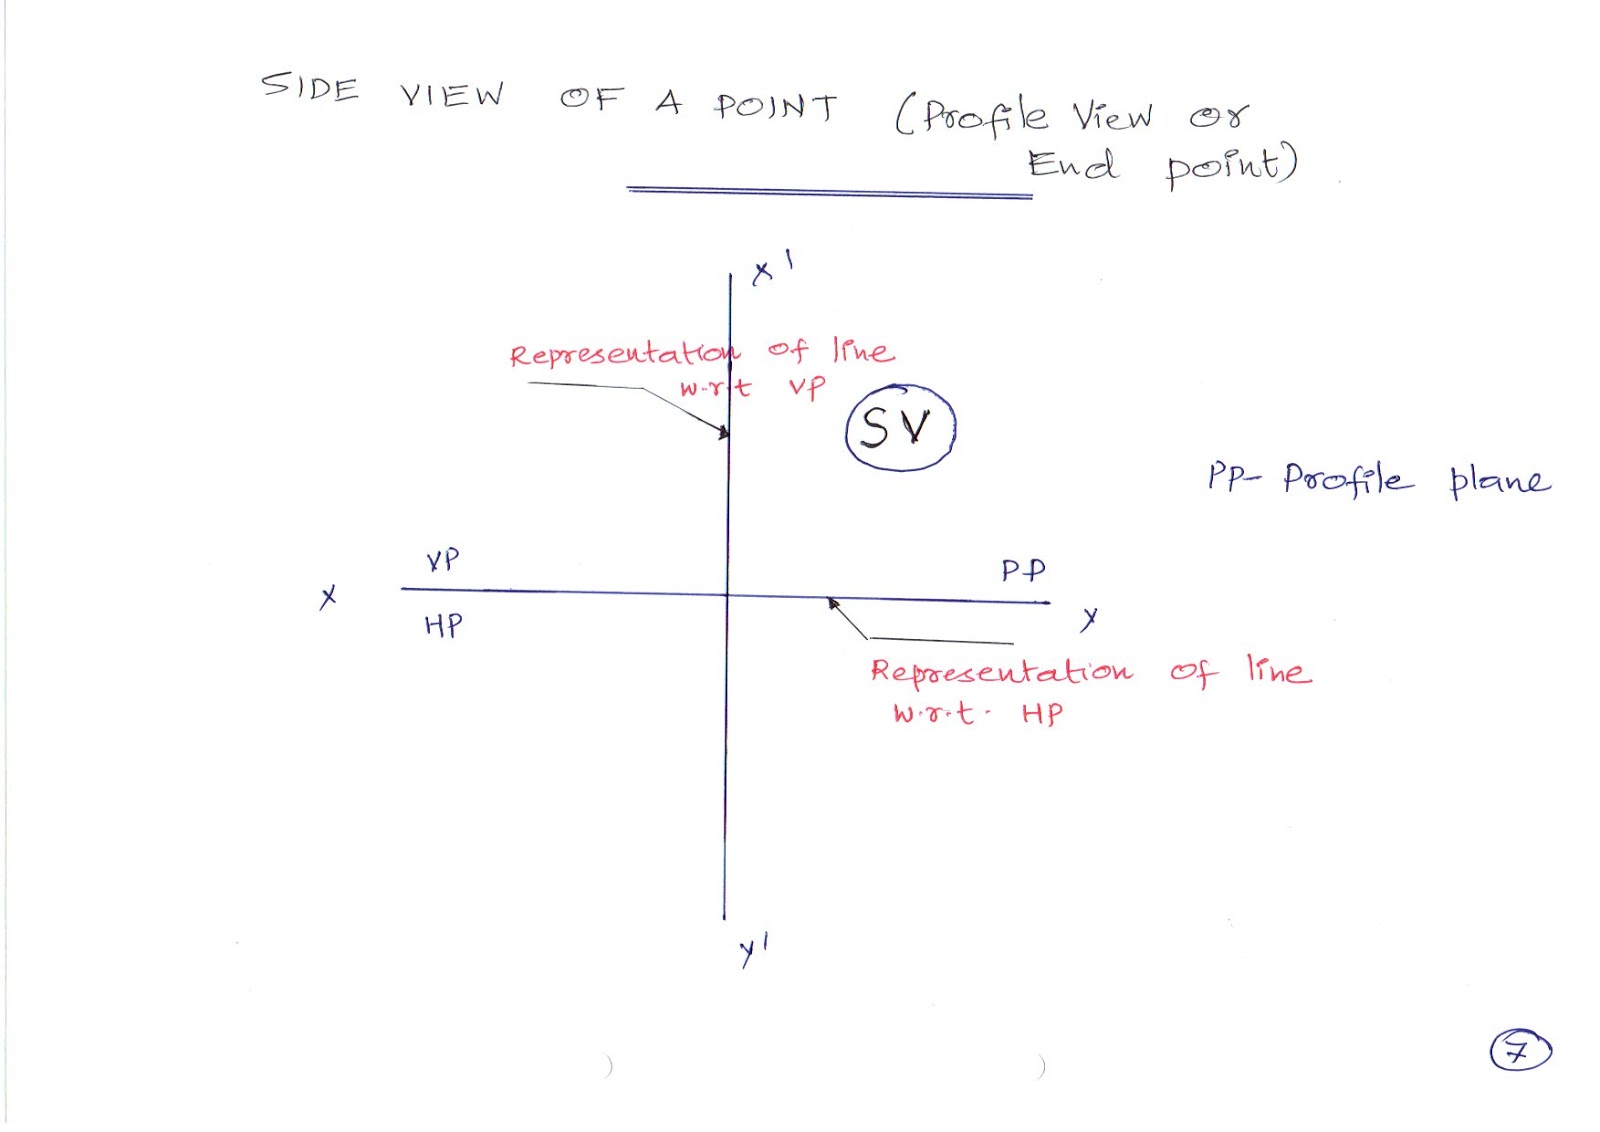 SIDE VIEW OF A POINT (Profile View or
End point)
X'
Representation of line
w.r.t VP
SV
PP- Profile plane
VP
PP
X
HP
Y
Representation of line
w.r.t. HP
Y'
7